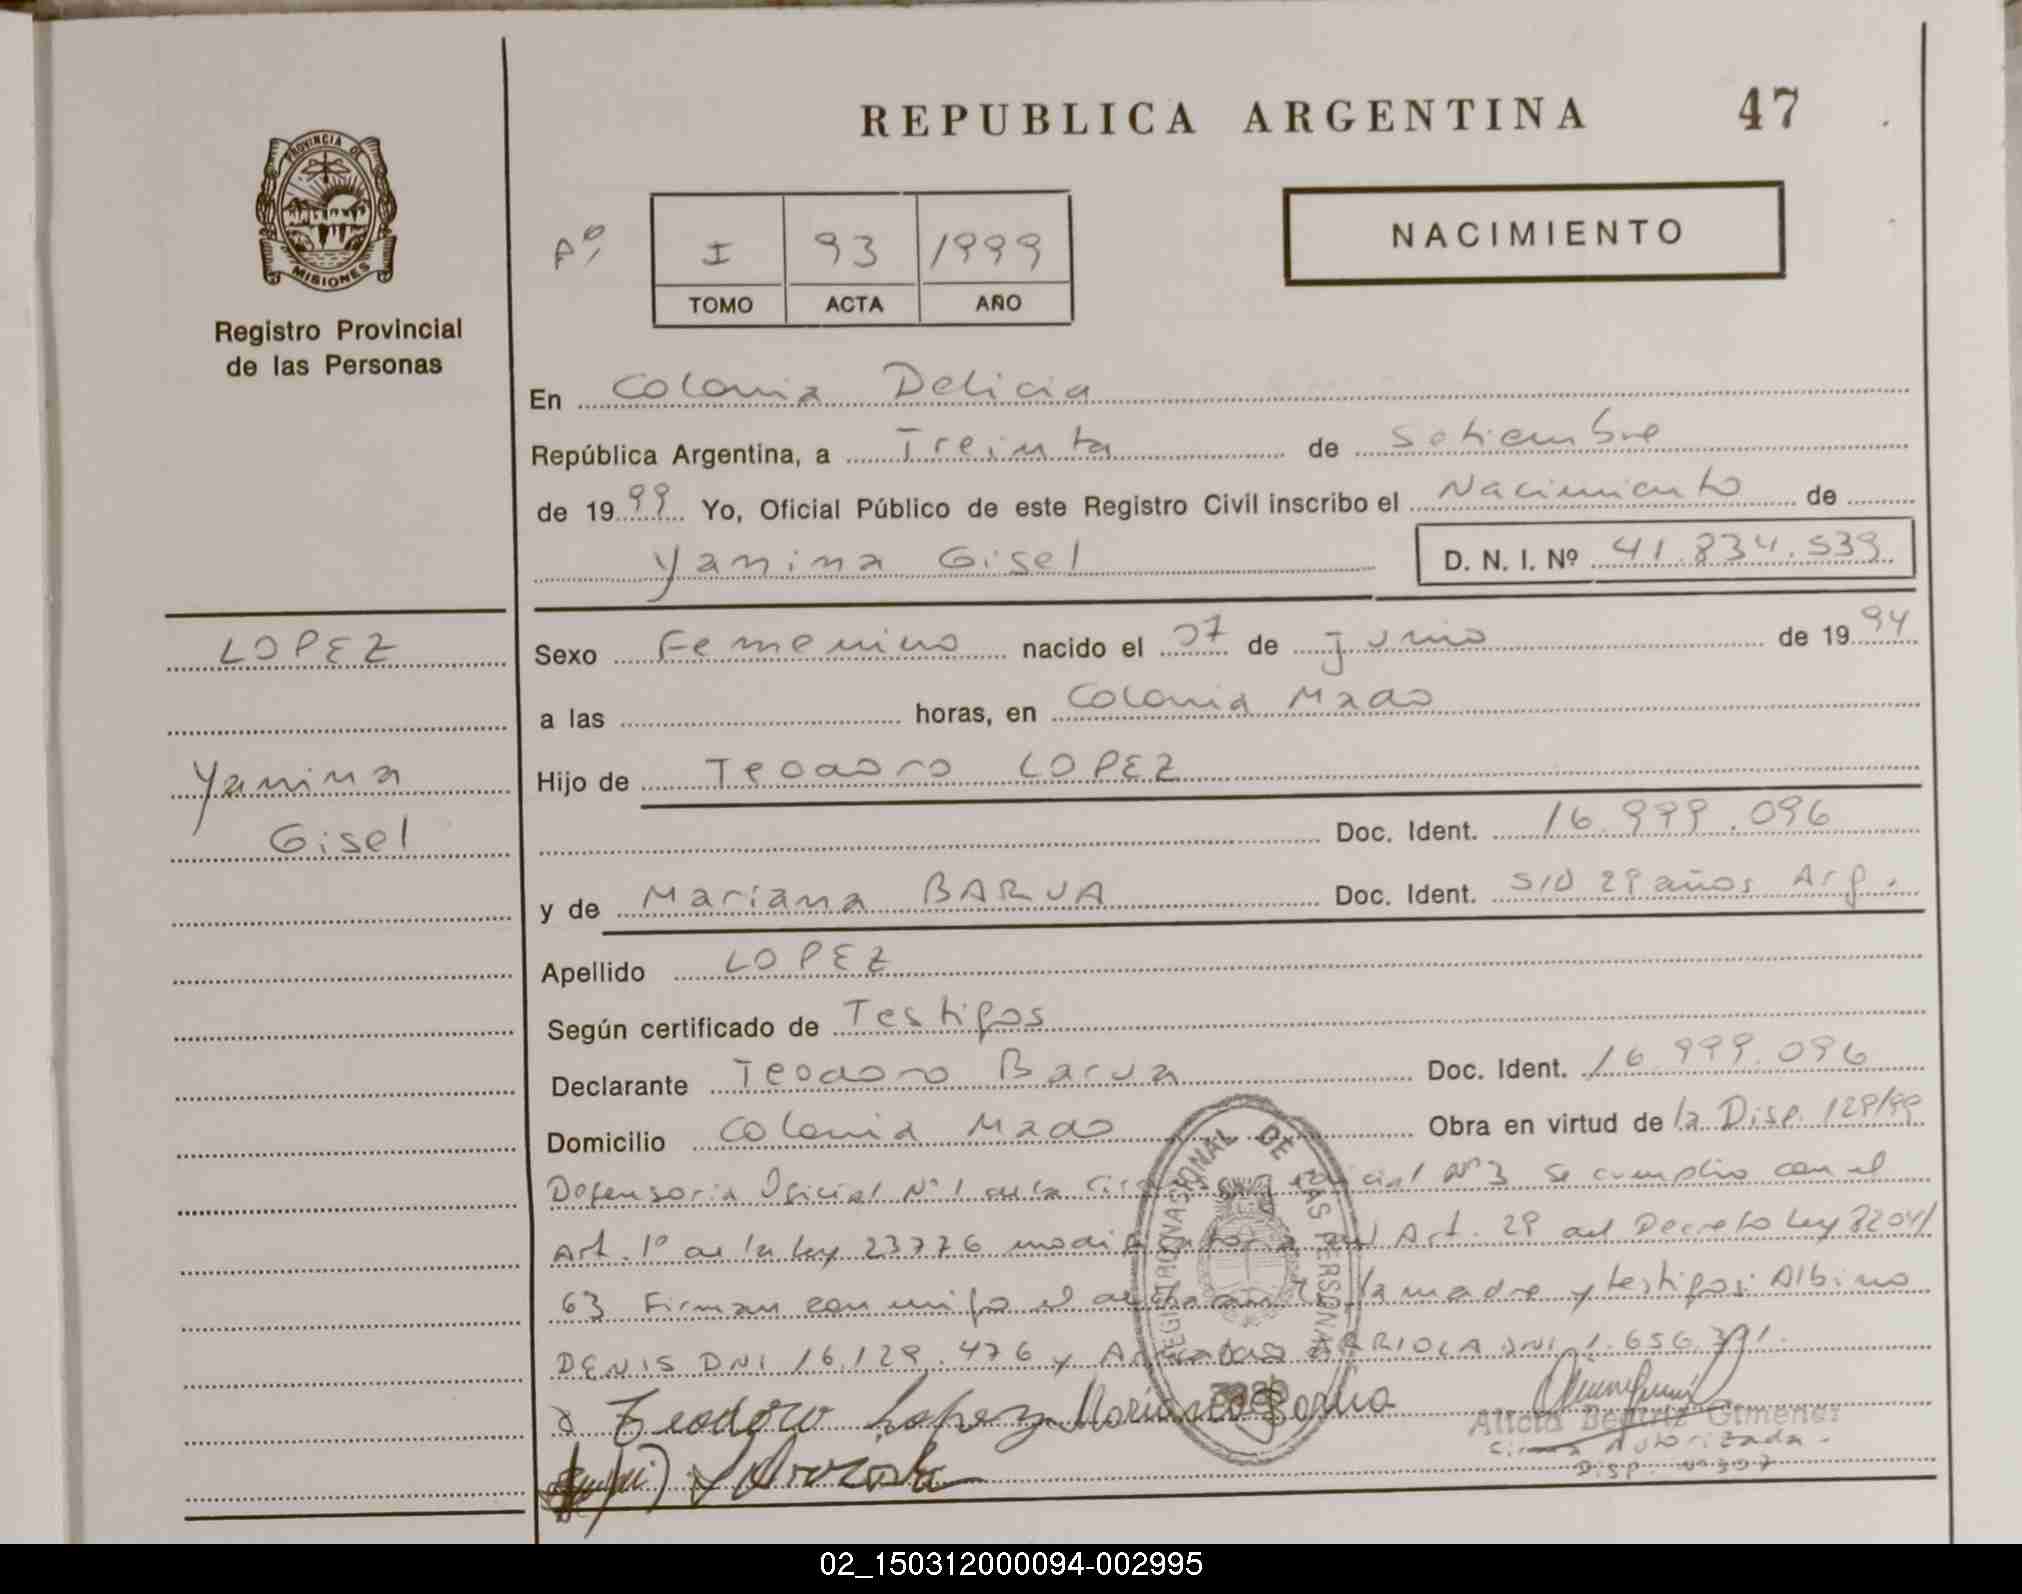 REPUBLICA ARGENTINA 47
PROVINCIA DE
MISIONES
Registro Provincial
de las Personas
NACIMIENTO
I 93 1999
TOMO ACTA AÑO
En Colonia Delicia
República Argentina, a Treinta de Setiembre
de 1999 Yo, Oficial Público de este Registro Civil inscribo el Nacimiento de
Yanina Gisel D. N. I. Nº 41.834.539
LOPEZ
Yanina
Gisel
Sexo Femenino nacido el 07 de Junio de 1994
a las horas, en Colonia Mado
Hijo de Teodoro LOPEZ
Doc. Ident. 16.999.096
y de Mariana BARUA Doc. Ident. S/D 29 años Arg.
Apellido LOPEZ
Según certificado de Testigos
Declarante Teodoro Barua Doc. Ident. 16.999.096
Domicilio Colonia Mado Obra en virtud de la Disp. 129/99
Defensoria Oficial Nº 1 de la Nº 3 se cumplio con el
Art. 1º de la Ley 23776 del Art. 29 del Decreto Ley 8204/
63 Firman conmigo el la madre y testigos: Albino
DENIS DNI 16.129.476 y ARRIOLA DNI
Teodoro Lopez Mariana Barua
REGISTRO NACIONAL DE LAS PERSONAS
Alicia Beatriz Gimenez
Firma Autorizada
Disp. Nº 307
02_150312000094-002995